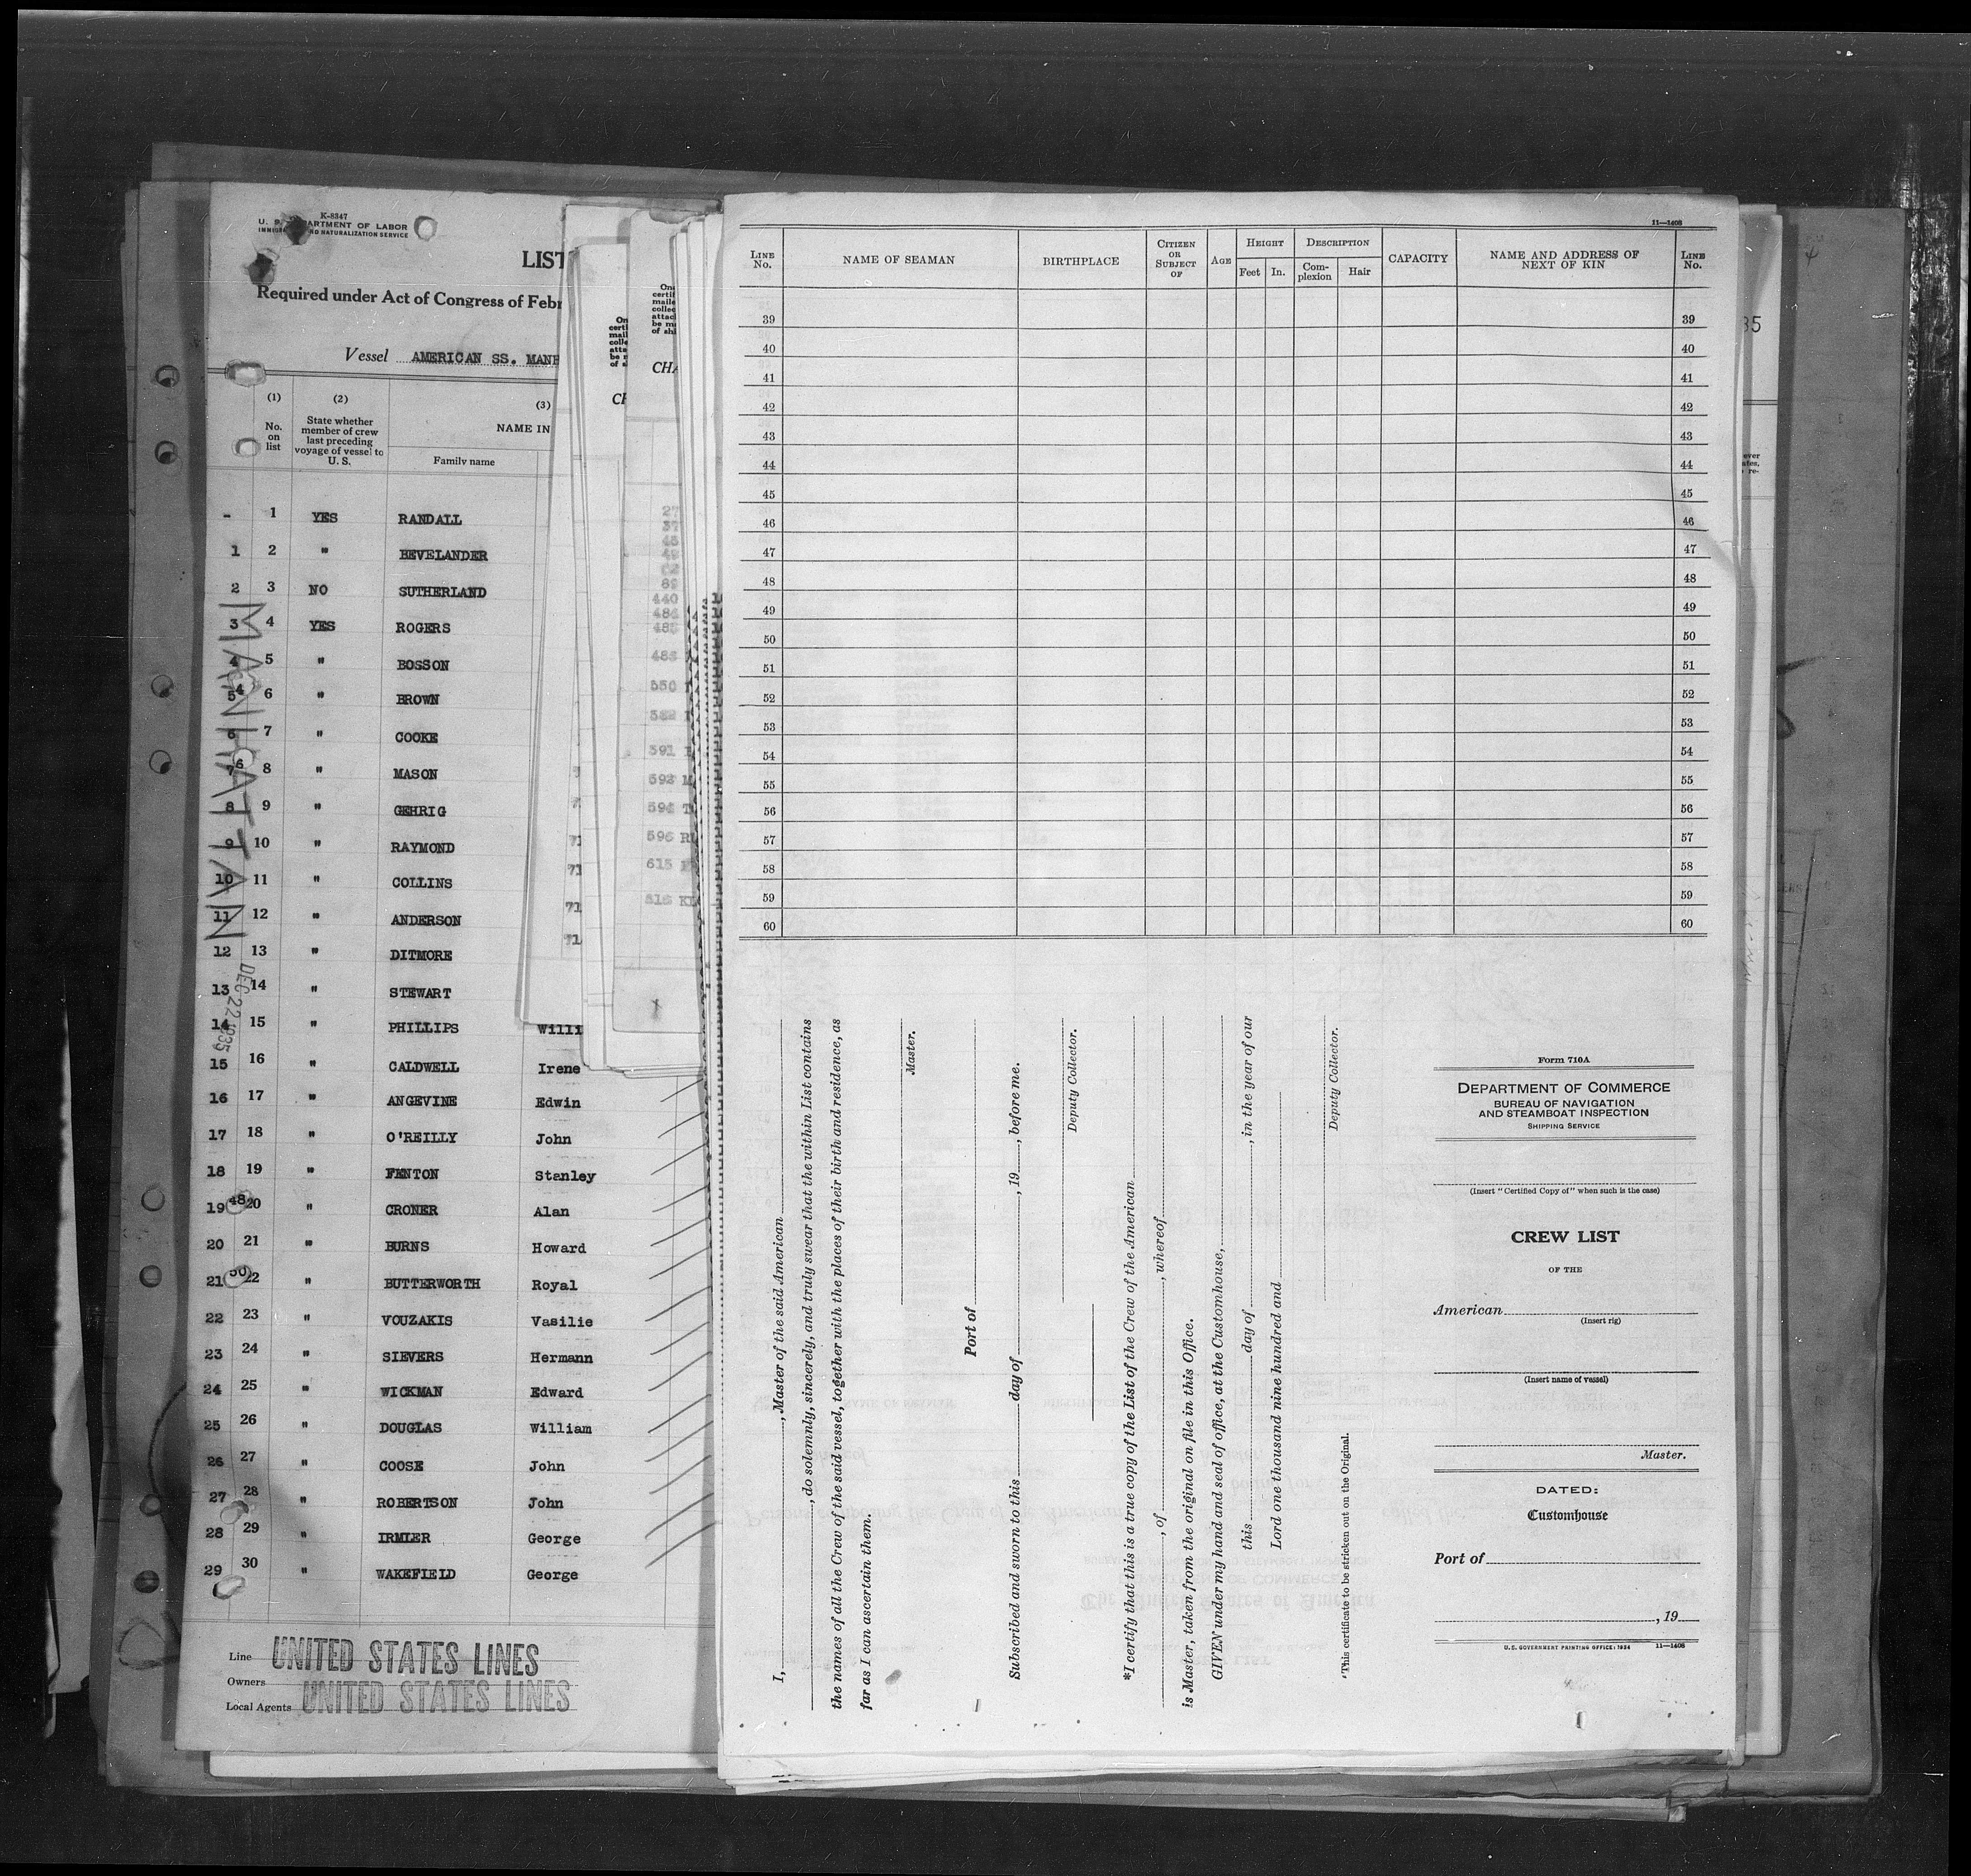 K-8347
U. S. DEPARTMENT OF LABOR
IMMIGRATION AND NATURALIZATION SERVICE
LIST
Required under Act of Congress of Febr
Vessel AMERICAN SS. MANH
(1) (2) (3)
No. on list
State whether member of crew last preceding voyage of vessel to U. S.
NAME IN
Family name
- 1 YES RANDALL
1 2 " BEVELANDER
2 3 NO SUTHERLAND
3 4 YES ROGERS
4 5 " BOSSON
5 6 " BROWN
6 7 " COOKE
7 8 " MASON
8 9 " GEHRIG
9 10 " RAYMOND
10 11 " COLLINS
11 12 " ANDERSON
12 13 " DITMORE
13 14 " STEWART
14 15 " PHILLIPS Willi
15 16 " CALDWELL Irene
16 17 " ANGEVINE Edwin
17 18 " O'REILLY John
18 19 " FENTON Stanley
19 20 " CRONER Alan
20 21 " BURNS Howard
21 22 " BUTTERWORTH Royal
22 23 " VOUZAKIS Vasilie
23 24 " SIEVERS Hermann
24 25 " WICKMAN Edward
25 26 " DOUGLAS William
26 27 " COOSE John
27 28 " ROBERTSON John
28 29 " IRMLER George
29 30 " WAKEFIELD George
MANHATTAN
DEC 22 1935
Line UNITED STATES LINES
Owners
Local Agents UNITED STATES LINES
On
certi
mail
colle
atta
be m
of s
CH
On
certif
maile
collec
attac
be m
of shi
CHA
440
550
591
592 M
594 T
596 R
615
71
71
71
11—1408
LINE No. NAME OF SEAMAN BIRTHPLACE CITIZEN OR SUBJECT OF AGE HEIGHT Feet In. DESCRIPTION Complexion Hair CAPACITY NAME AND ADDRESS OF NEXT OF KIN LINE No.
39 39
40 40
41 41
42 42
43 43
44 44
45 45
46 46
47 47
48 48
49 49
50 50
51 51
52 52
53 53
54 54
55 55
56 56
57 57
58 58
59 59
60 60
I, , Master of the said American
, do solemnly, sincerely, and truly swear that the within List contains
the names of all the Crew of the said vessel, together with the places of their birth and residence, as
far as I can ascertain them.
Master.
Port of
Subscribed and sworn to this day of , 19 , before me.
Deputy Collector.
*I certify that this is a true copy of the List of the Crew of the American
, of , whereof
is Master, taken from the original on file in this Office.
GIVEN under my hand and seal of office, at the Customhouse,
this day of , in the year of our
Lord one thousand nine hundred and
Deputy Collector.
*This certificate to be stricken out on the Original.
Form 710A
DEPARTMENT OF COMMERCE
BUREAU OF NAVIGATION
AND STEAMBOAT INSPECTION
SHIPPING SERVICE
(Insert "Certified Copy of" when such is the case)
CREW LIST
OF THE
American
(Insert rig)
(Insert name of vessel)
Master.
DATED:
Customhouse
Port of
, 19
U.S. GOVERNMENT PRINTING OFFICE: 1934 11—1408
35
ever
ates,
re-